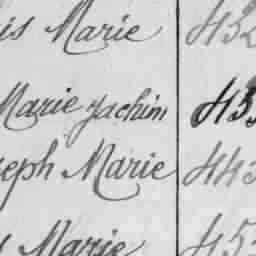 is Marie 432
Marie Jachim 433
seph Marie 443
Marie 453